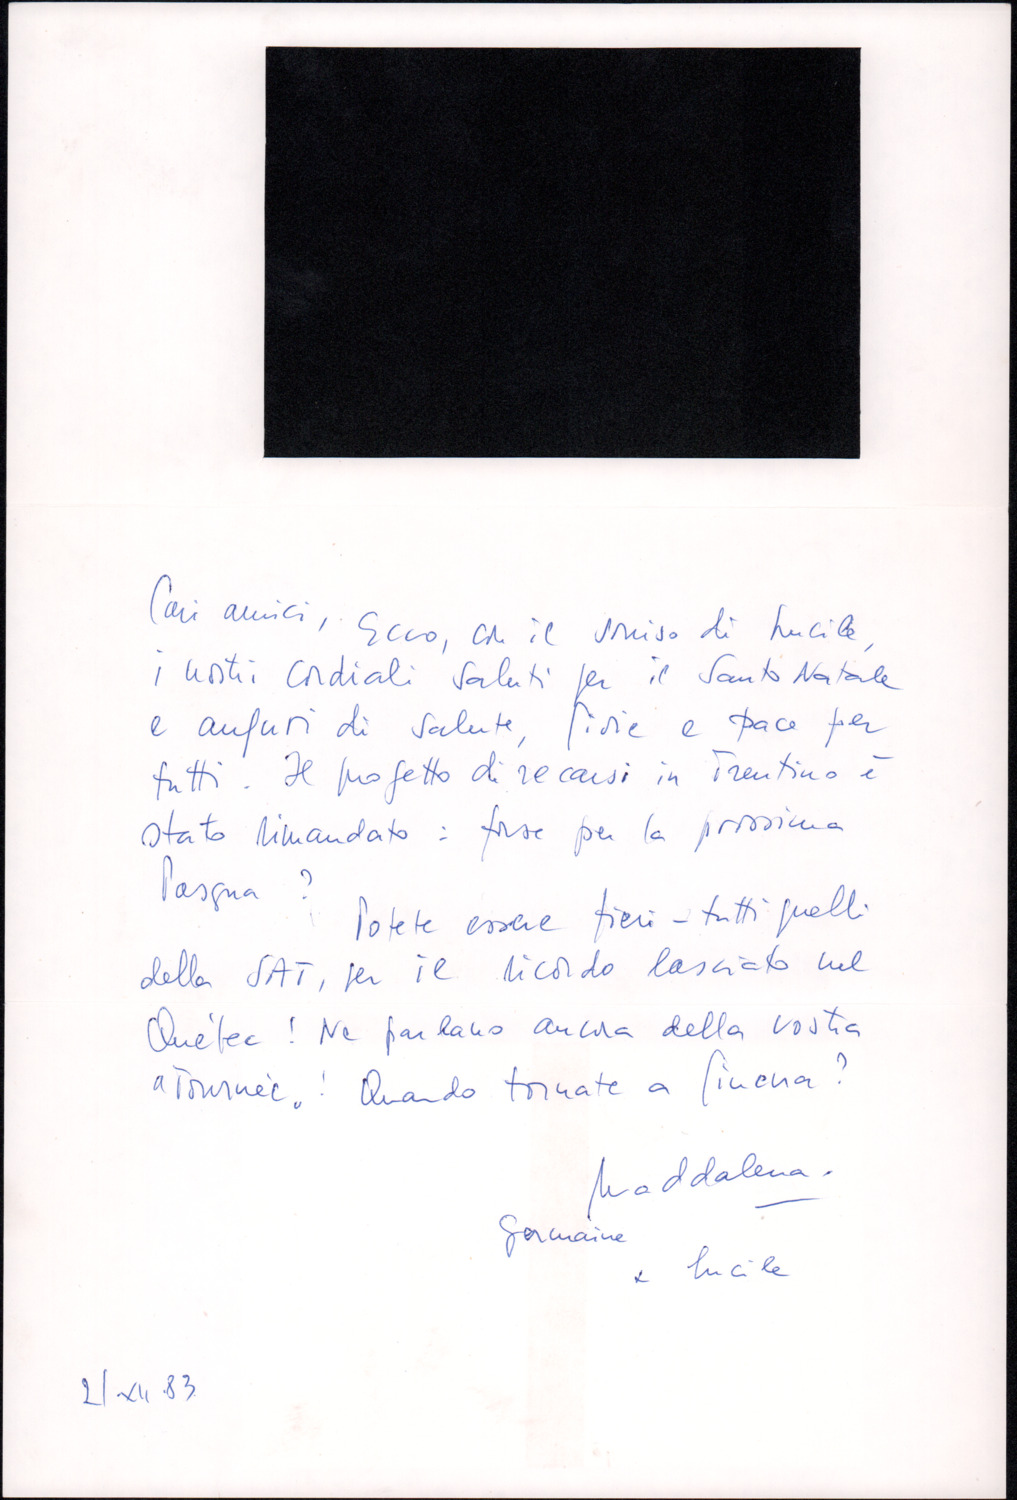 Cari amici, Ecco, con il sorriso di Lucile,
i nostri cordiali saluti per il Santo Natale
e auguri di salute, gioie e pace per
tutti. Il progetto di recarsi in Trentino è
stato rimandato : forse per la prossima
Pasqua ?
Potete essere fieri - tutti quelli
della SAT, per il ricordo lasciato nel
Québec ! Ne parlano ancora della vostra
"Tournée" ! Quando tornate a ?
Maddalena.
Germaine
& Lucile
21 XII 83